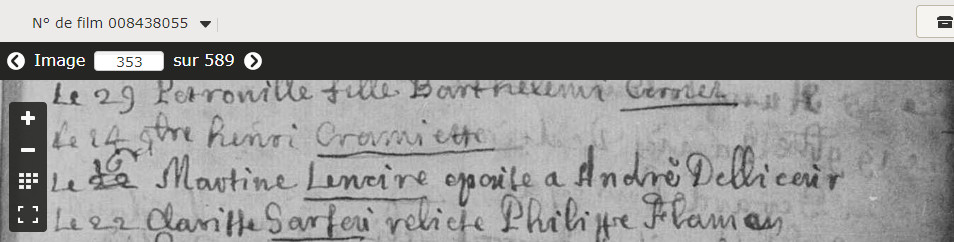 N° de film 008438055
Image 353 sur 589
Le 29 Petronille fille Barthelemi
Le 14 9bre henri Cramiette
Le 22 Martine Lencire epouse a Andrè Dellicour
Le 22 Claritte Sarteu relicte Philippe Flaman